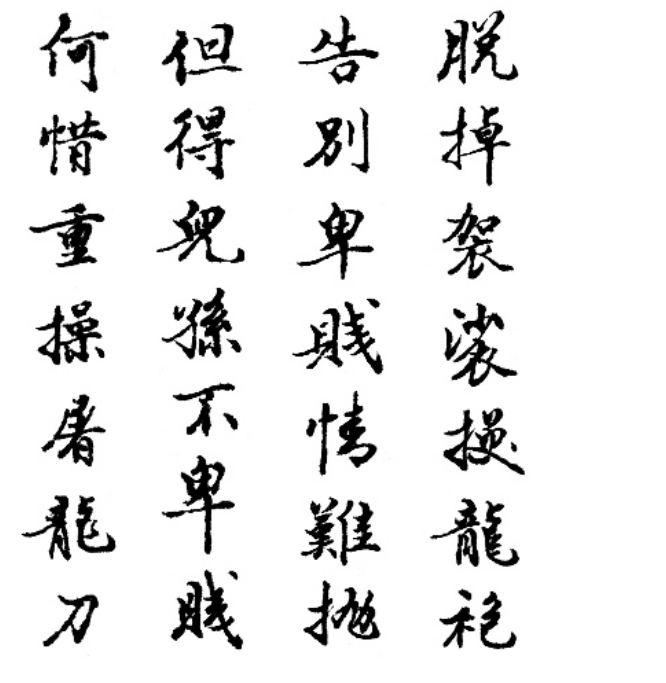 脫掉袈裟換龍袍
告別卑賤情難拋
但得兒孫不卑賤
何惜重操屠龍刀